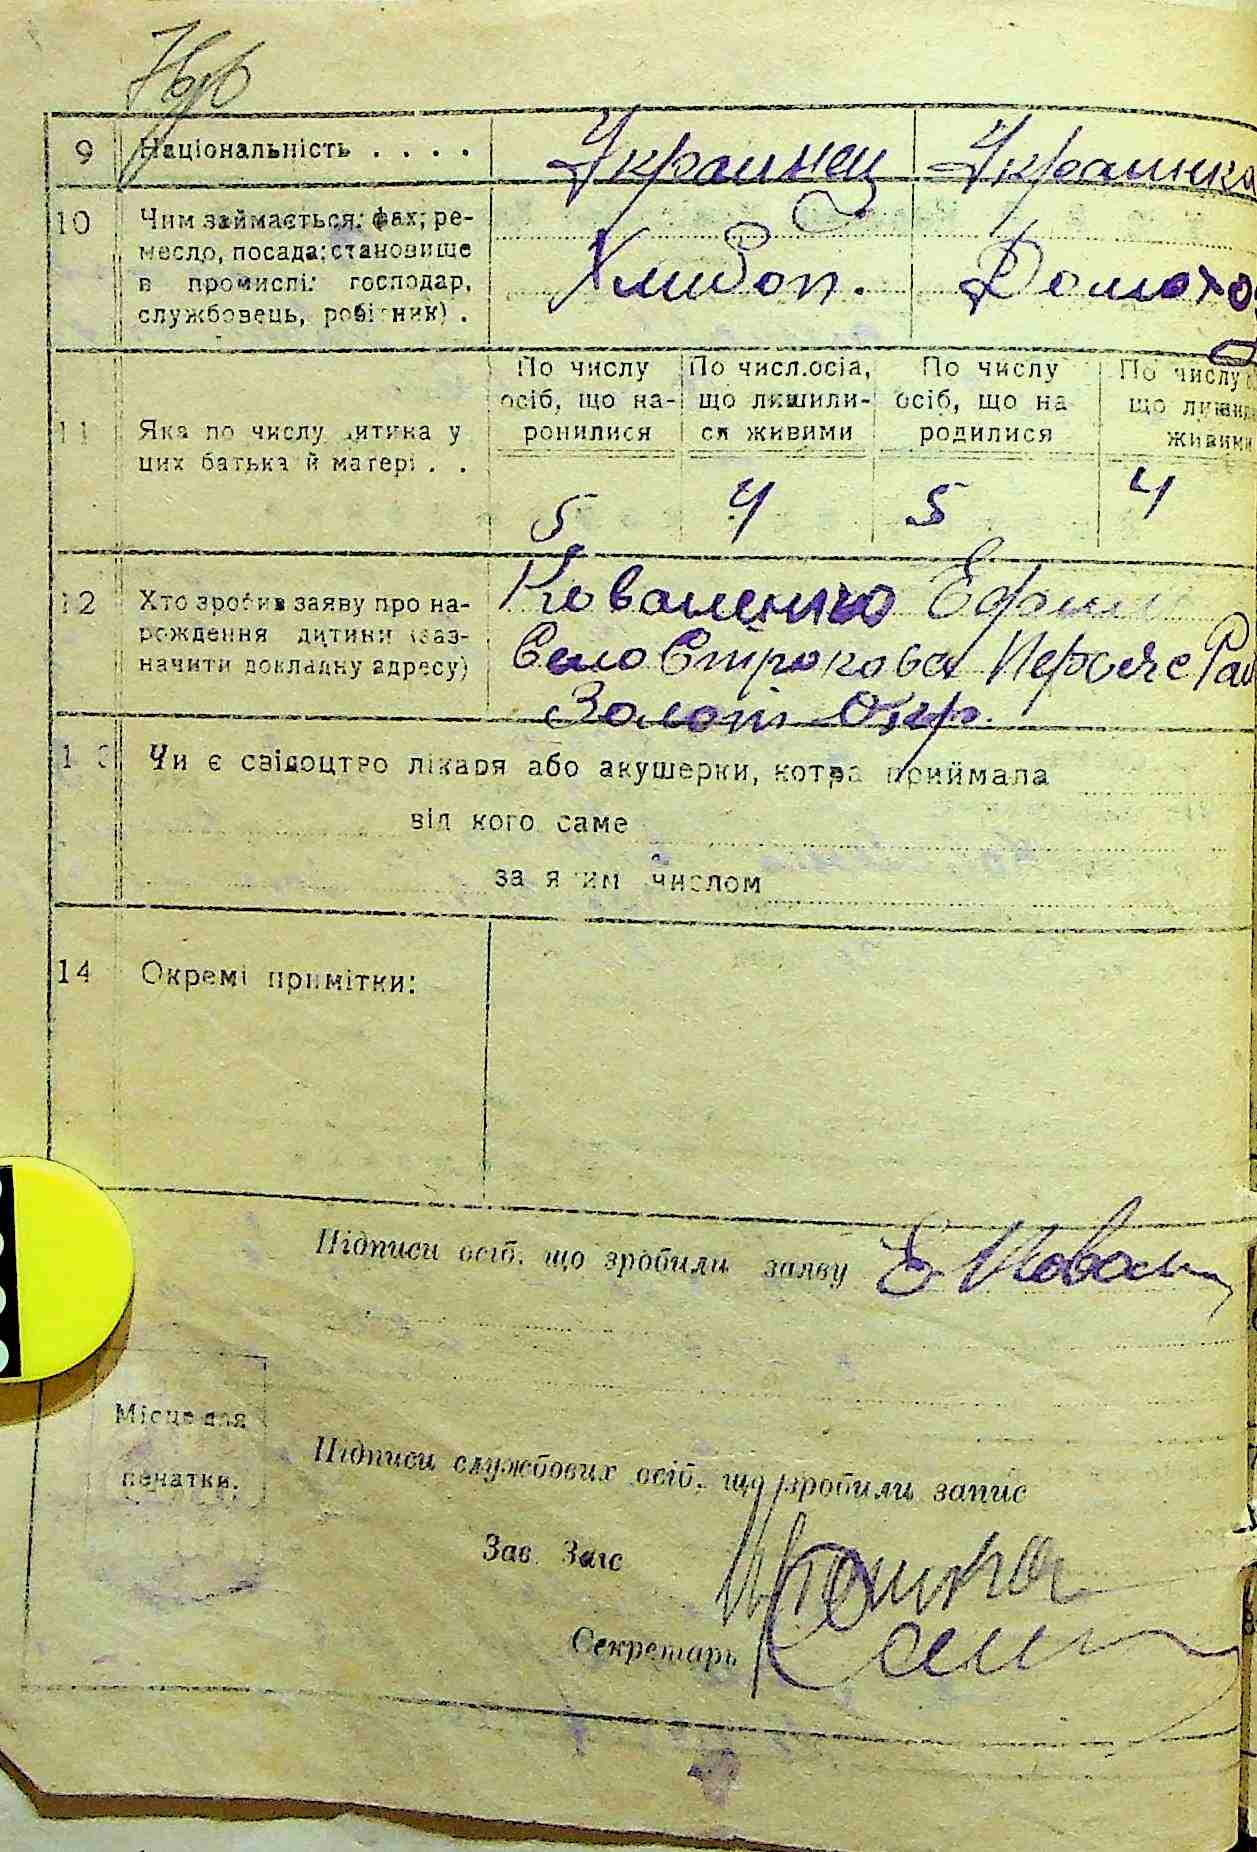 9 Національність . . . . Украинец Украинка
10 Чим займається: фах; ре-
месло, посада; становище
в промислі: господар,
службовець, робітник) .
Хлибоп. Домохоз
11 Яка по числу дитина у
цих батька й матері . .
По числу осіб, що на-ронилися
По числ.осіа, що лишили-ся живими
По числу осіб, що на родилися
По числу що лиши живими
5 4 5 4
12 Хто зробив заяву про на-
рождення дитини (заз-
начити докладну адресу)
Коваленко Ефрем
Село Строкова
Золот Окр.
13 Чи є свідоцтво лікаря або акушерки, котра приймала
від кого саме
за яким числом
14 Окремі примітки:
Підписи осіб, що зробили заяву Е Ковал
Місце для
печатки.
Підписи службових осіб, що зробили запис
Зав. Загс
Секретарь